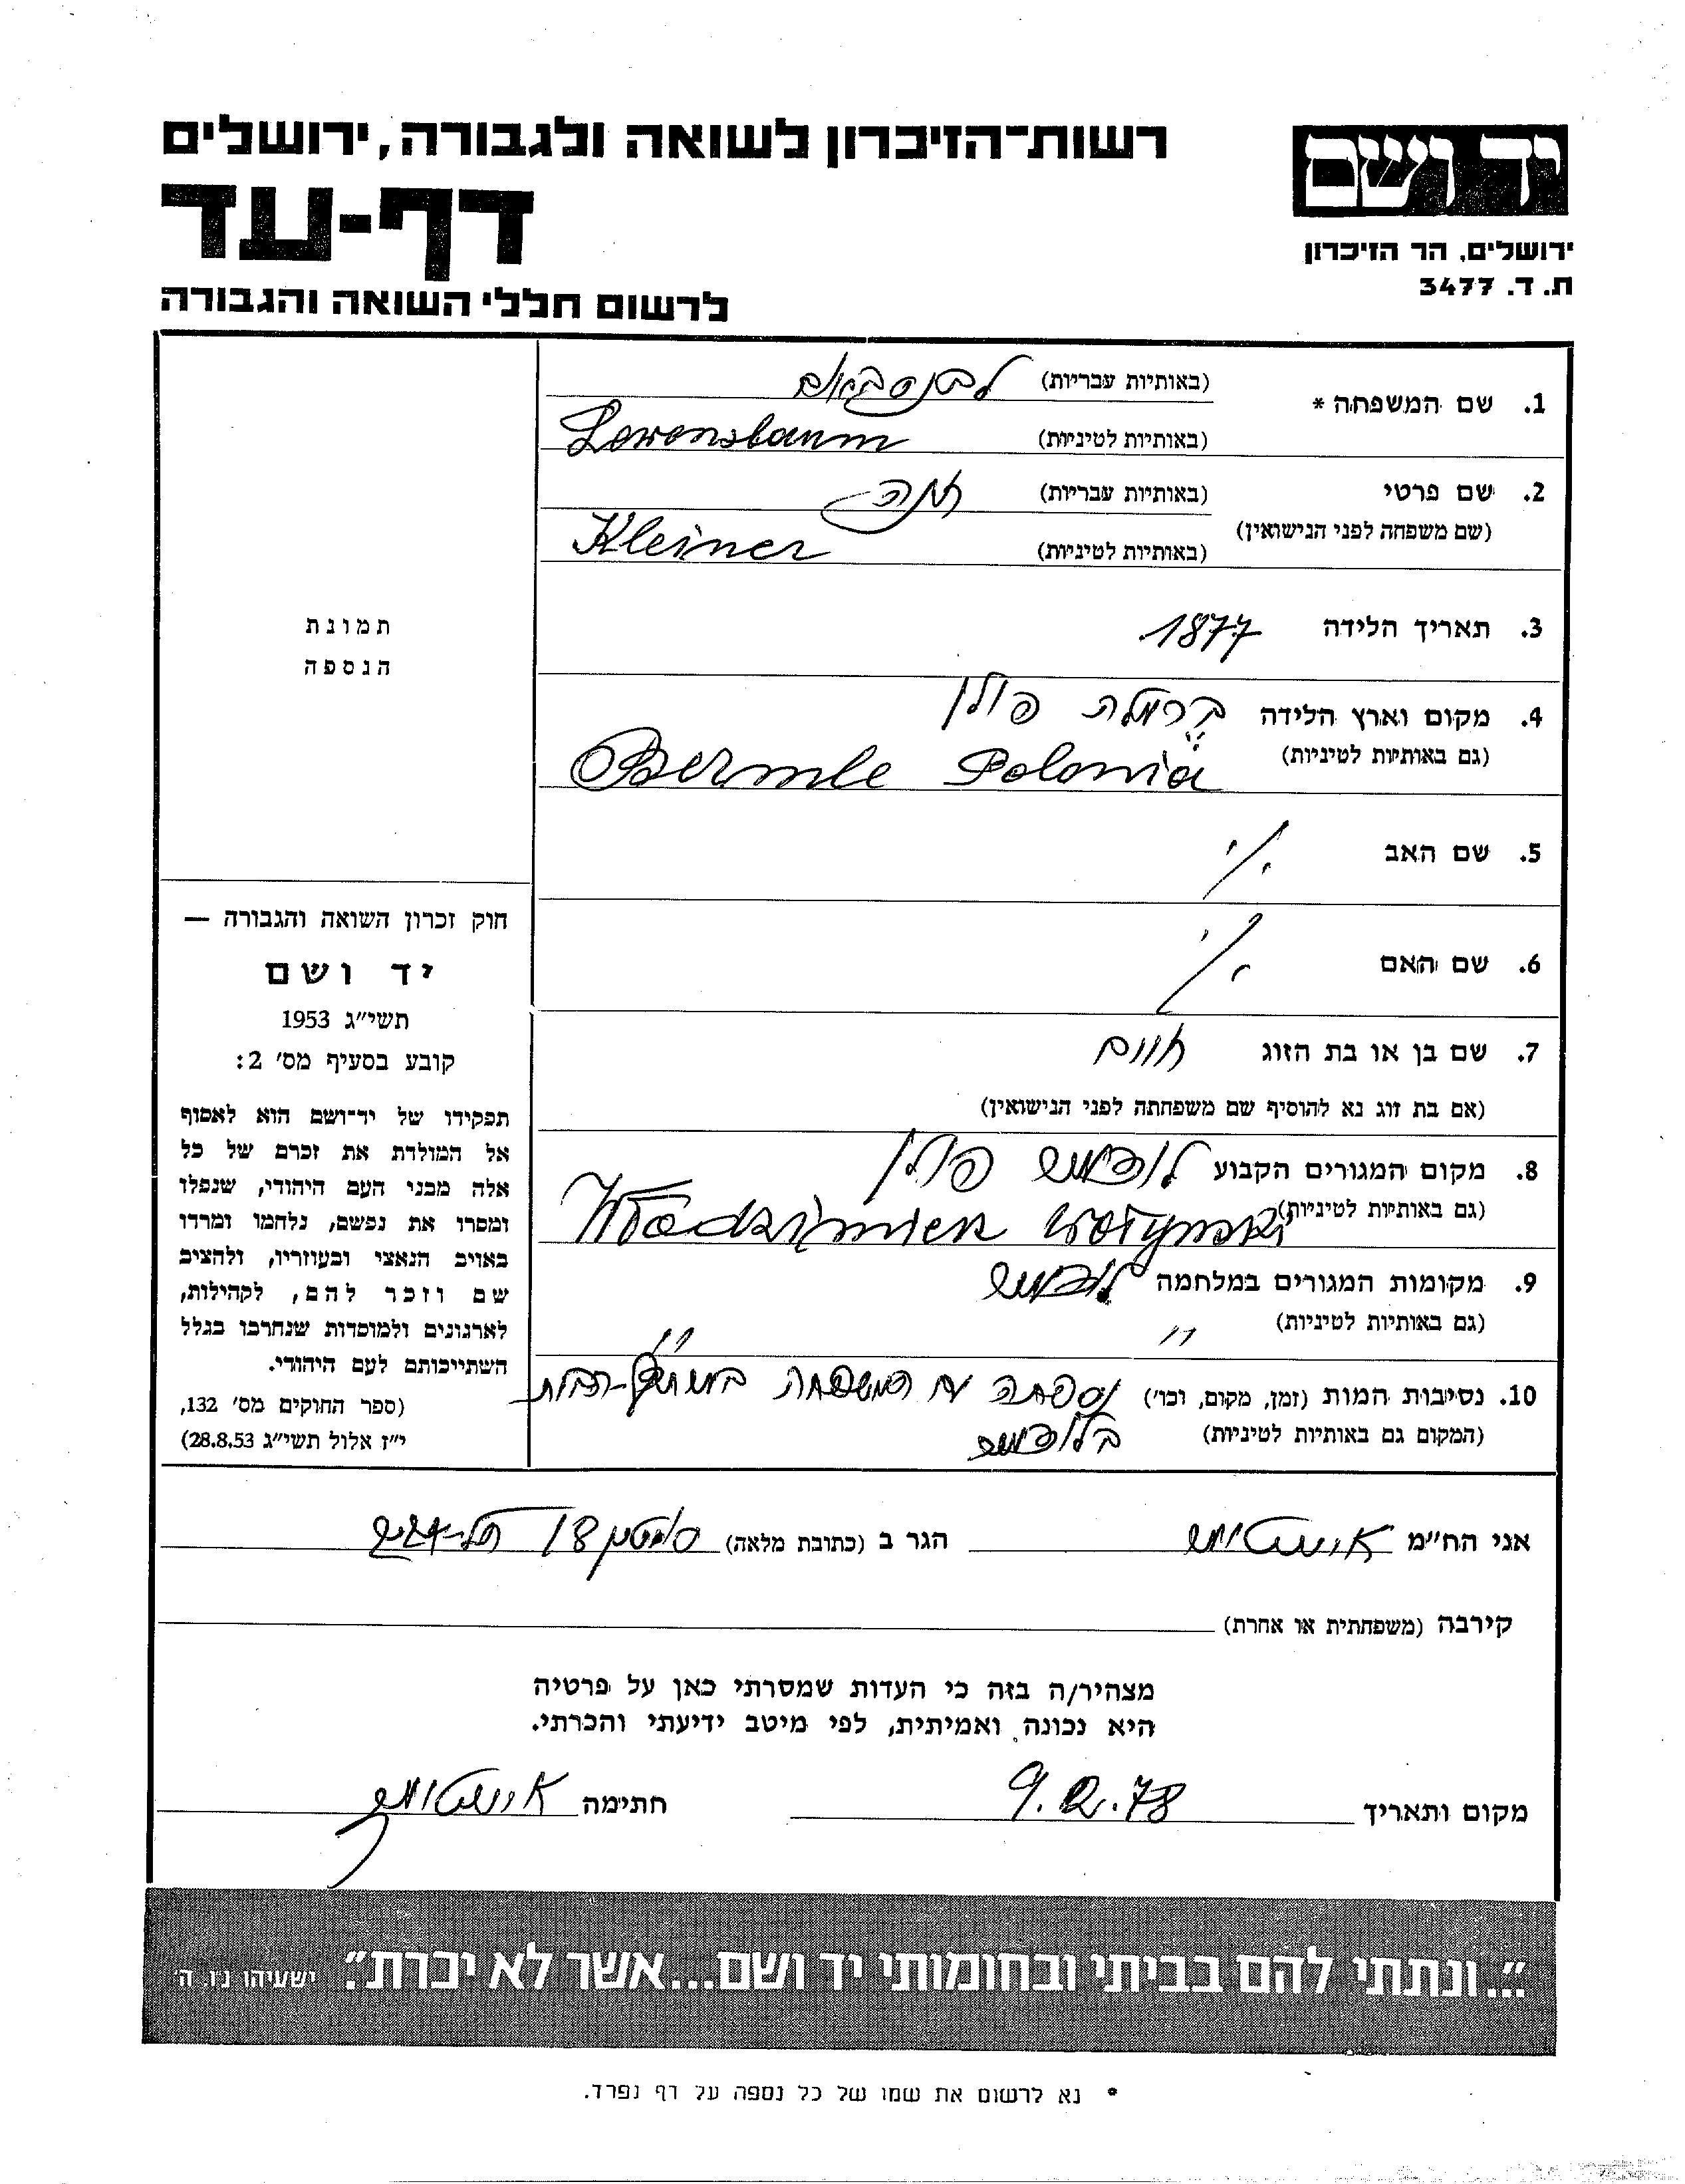 יד ושם
ירושלים, הר הזיכרון
ת. ד. 3477
רשות־הזיכרון לשואה ולגבורה, ירושלים
דף-עד
לרשום חללי השואה והגבורה
תמונת
הנספה
חוק זכרון השואה והגבורה —
יד ושם
תשי״ג 1953
קובע בסעיף מס׳ 2:
תפקידו של יד־ושם הוא לאסוף
אל המולדת את זכרם של כל
אלה מבני העם היהודי, שנפלו
ומסרו את נפשם, נלחמו ומרדו
באויב הנאצי ובעוזריו, ולהציב
שם וזכר להם, לקהילות,
לארגונים ולמוסדות שנחרבו בגלל
השתייכותם לעם היהודי.
(ספר החוקים מס׳ 132,
י״ז אלול תשי״ג 28.8.53)
1. שם המשפחה * (באותיות עבריות)
(באותיות לטיניות) Lewensbaum
2. שם פרטי (באותיות עבריות) חנה
(שם משפחה לפני הנישואין) (באותיות לטיניות) Kleiner
3. תאריך הלידה 1877
4. מקום וארץ הלידה ברמלה פולין
(גם באותיות לטיניות) Bermle Polonia
5. שם האב
6. שם האם
7. שם בן או בת הזוג חיים
(אם בת זוג נא להוסיף שם משפחתה לפני הנישואין)
8. מקום המגורים הקבוע לודמיש פולין
(גם באותיות לטיניות) Włodzimierz Wołyński
9. מקומות המגורים במלחמה לודמיש
(גם באותיות לטיניות) ״ ״
10. נסיבות המות (זמן, מקום, וכו׳) נספתה עם המשפחה
(המקום גם באותיות לטיניות) בלודמיש
אני הח״מ הגר ב (כתובת מלאה) 18 תל-אביב
קירבה (משפחתית או אחרת)
מצהיר/ה בזה כי העדות שמסרתי כאן על פרטיה
היא נכונה ואמיתית, לפי מיטב ידיעתי והכרתי.
מקום ותאריך 9.2.78 חתימה
״...ונתתי להם בביתי ובחומותי יד ושם...אשר לא יכרת״. ישעיהו נ״ו, ה׳
* נא לרשום את שמו של כל נספה על דף נפרד.